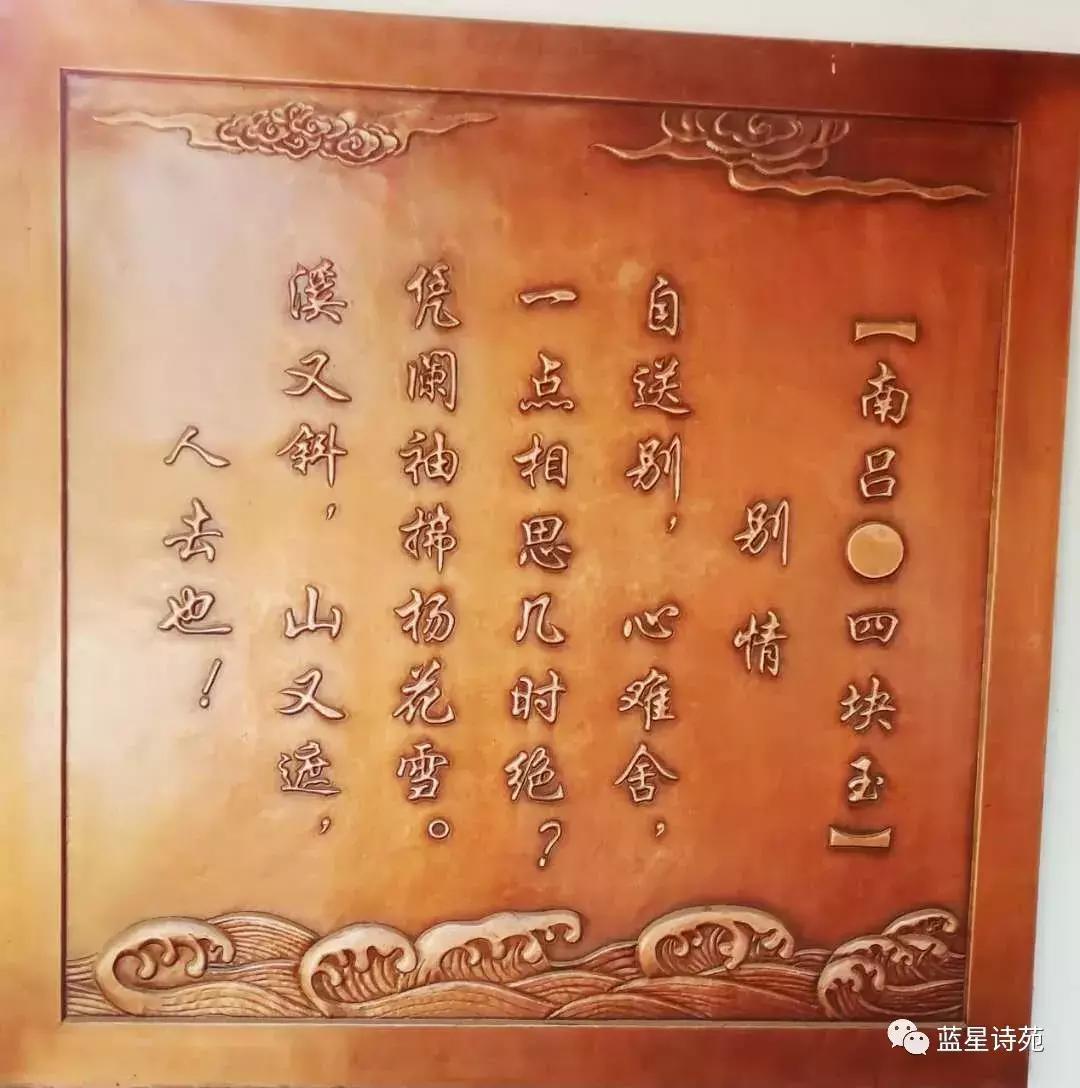 【南吕●四块玉】
别情
自送别，心难舍，
一点相思几时绝？
凭阑袖拂杨花雪。
溪又斜，山又遮，
人去也！
蓝星诗苑